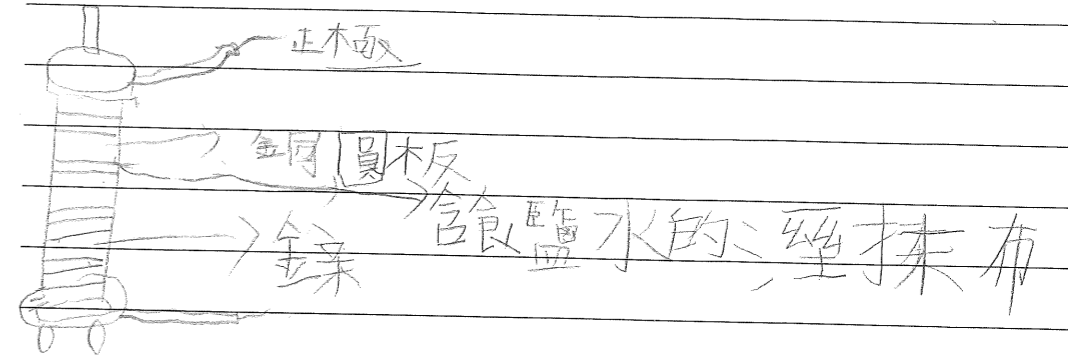 正極
銅圓板
含食鹽水的溼抹布
鎳